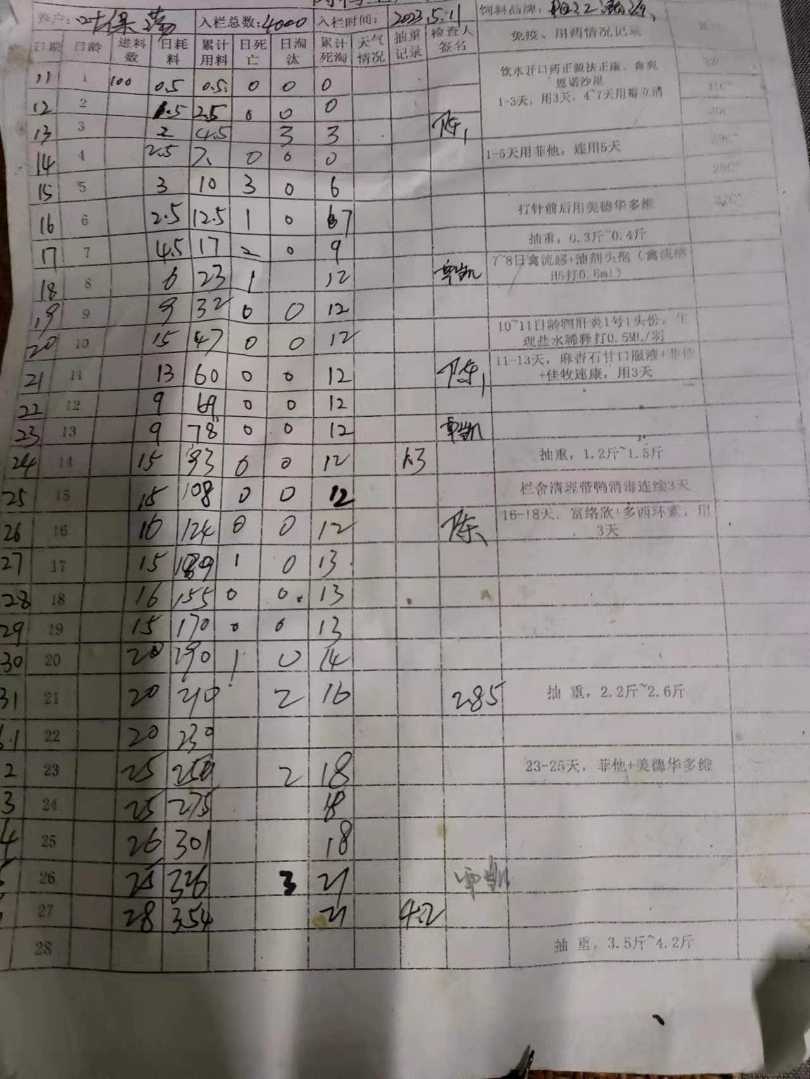 入栏总数:4000 入栏时间: 2023.5.11 饲料品牌:
日期 日龄 进料数 日耗料 累计用料 日死亡 日淘汰 累计死淘 天气情况 抽重记录 检查人签名 免疫、用药情况记录
11 1 100 0.5 0.5 0 0 0
12 2 1.5 2.5 0 0 0 1-3天,用3天,4~7天用
13 3 2 4.5 3 3 陈
14 4 2.5 7 0 0 0 1-5天用菲他,连用5天
15 5 3 10 3 0 6
16 6 2.5 12.5 1 0 7 打针前后用美德华多维
17 7 4.5 17 2 0 9 抽重,0.3斤~0.4斤
18 8 6 23 1 12 7~8日禽流感+油剂
19 9 9 32 0 0 12
20 10 15 47 0 0 12 10~11日龄鸭肝炎1号1头份,生理盐水稀释打0.5ML/羽
21 11 13 60 0 0 12 陈 11-13天,麻杏石甘口服液+菲他+佳牧速康,用3天
22 12 9 69 0 0 12
23 13 9 78 0 0 12
24 14 15 93 0 0 12 1.3 抽重,1.2斤~1.5斤
25 15 15 108 0 0 12 栏舍清理带鸭消毒连续3天
26 16 16 124 0 0 12 陈 16-18天,富络欣+多西环素,用3天
27 17 15 139 1 0 13
28 18 16 155 0 0 13
29 19 15 170 0 0 13
30 20 20 190 1 0 14
31 21 20 210 2 16 2.85 抽 重,2.2斤~2.6斤
6.1 22 20 230
2 23 25 250 2 18 23-25天,菲他+美德华多维
3 24 25 275 18
4 25 26 301 18
26 25 326 3 21
27 28 354 21 4.2
28 抽 重,3.5斤~4.2斤